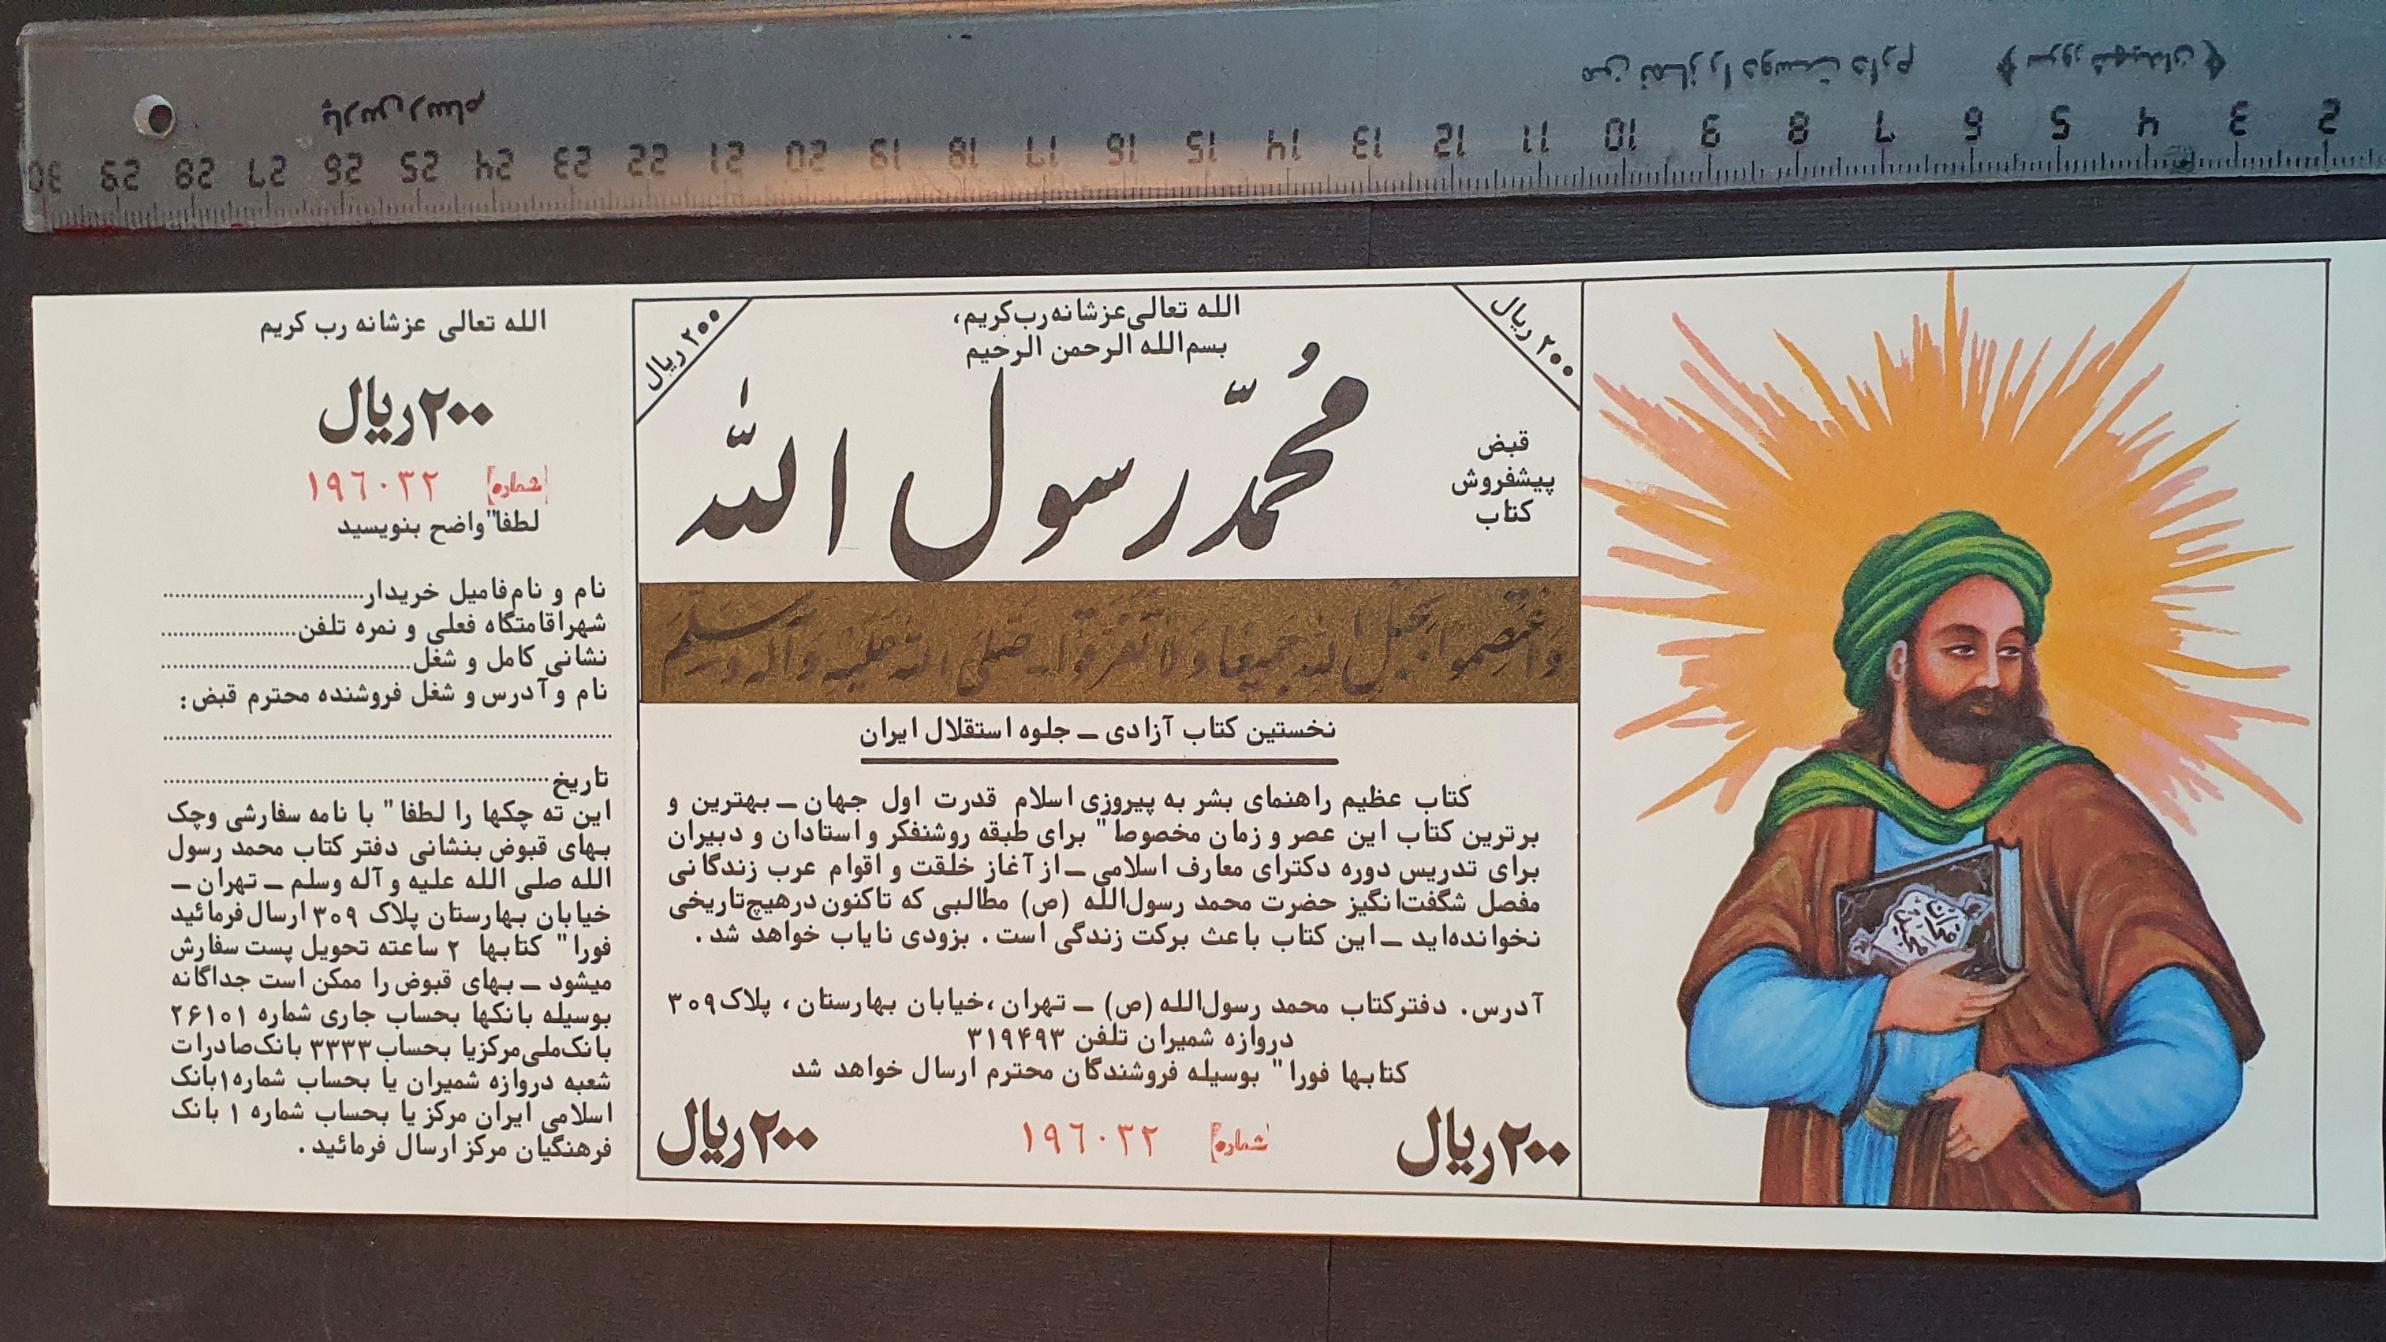 پارس رسام
من نماز را دوست دارم
سرور شهیدان
30 29 28 27 26 25 24 23 22 21 20 19 18 17 16 15 14 13 12 11 10 9 8 7 6 5 4 3 2
۲۰۰ ریال
۲۰۰ ریال
الله تعالی عزشانه رب کریم،
بسم الله الرحمن الرحیم
مُحَمّد رسول اللّٰه
قبض
پیشفروش
کتاب
وَاعْتَصِموا بِحَبلِ اللهِ جَمیعًا وَلا تَفَرَّقوا ـ صَلَی اللهِ عَلَیهِ وَآلِه وَسَلِّم
نخستین کتاب آزادی ـ جلوه استقلال ایران
کتاب عظیم راهنمای بشر به پیروزی اسلام قدرت اول جهان ـ بهترین و
برترین کتاب این عصر و زمان مخصوصا" برای طبقه روشنفکر و استادان و دبیران
برای تدریس دوره دکترای معارف اسلامی ـ از آغاز خلقت و اقوام عرب زندگانی
مفصل شگفت‌انگیز حضرت محمد رسول‌الله (ص) مطالبی که تاکنون درهیچ‌تاریخی
نخوانده‌اید ـ این کتاب باعث برکت زندگی است. بزودی نایاب خواهد شد.
آدرس. دفترکتاب محمد رسول‌الله (ص) ـ تهران، خیابان بهارستان، پلاک ۳۰۹
دروازه شمیران تلفن ۳۱۹۴۹۳
کتابها فورا" بوسیله فروشندگان محترم ارسال خواهد شد
۲۰۰ ریال
شماره ۱۹۶۰۳۲
۲۰۰ ریال
الله تعالی عزشانه رب کریم
۲۰۰ ریال
شماره ۱۹۶۰۳۲
لطفا" واضح بنویسید
نام و نام‌فامیل خریدار..............................
شهر اقامتگاه فعلی و نمره تلفن....................
نشانی کامل و شغل..............................
نام و آدرس و شغل فروشنده محترم قبض:
............................................................
تاریخ..................................................
این ته چکها را لطفا" با نامه سفارشی وچک
بهای قبوض بنشانی دفتر کتاب محمد رسول
الله صلی الله علیه و آله وسلم ـ تهران ـ
خیابان بهارستان پلاک ۳۰۹ ارسال فرمائید
فورا" کتابها ۲ ساعته تحویل پست سفارش
میشود ـ بهای قبوض را ممکن است جداگانه
بوسیله بانکها بحساب جاری شماره ۲۶۱۰۱
بانک‌ملی‌مرکزیا بحساب ۳۳۳۳ بانک‌صادرات
شعبه دروازه شمیران یا بحساب شماره ۱ بانک
اسلامی ایران مرکز یا بحساب شماره ۱ بانک
فرهنگیان مرکز ارسال فرمائید.